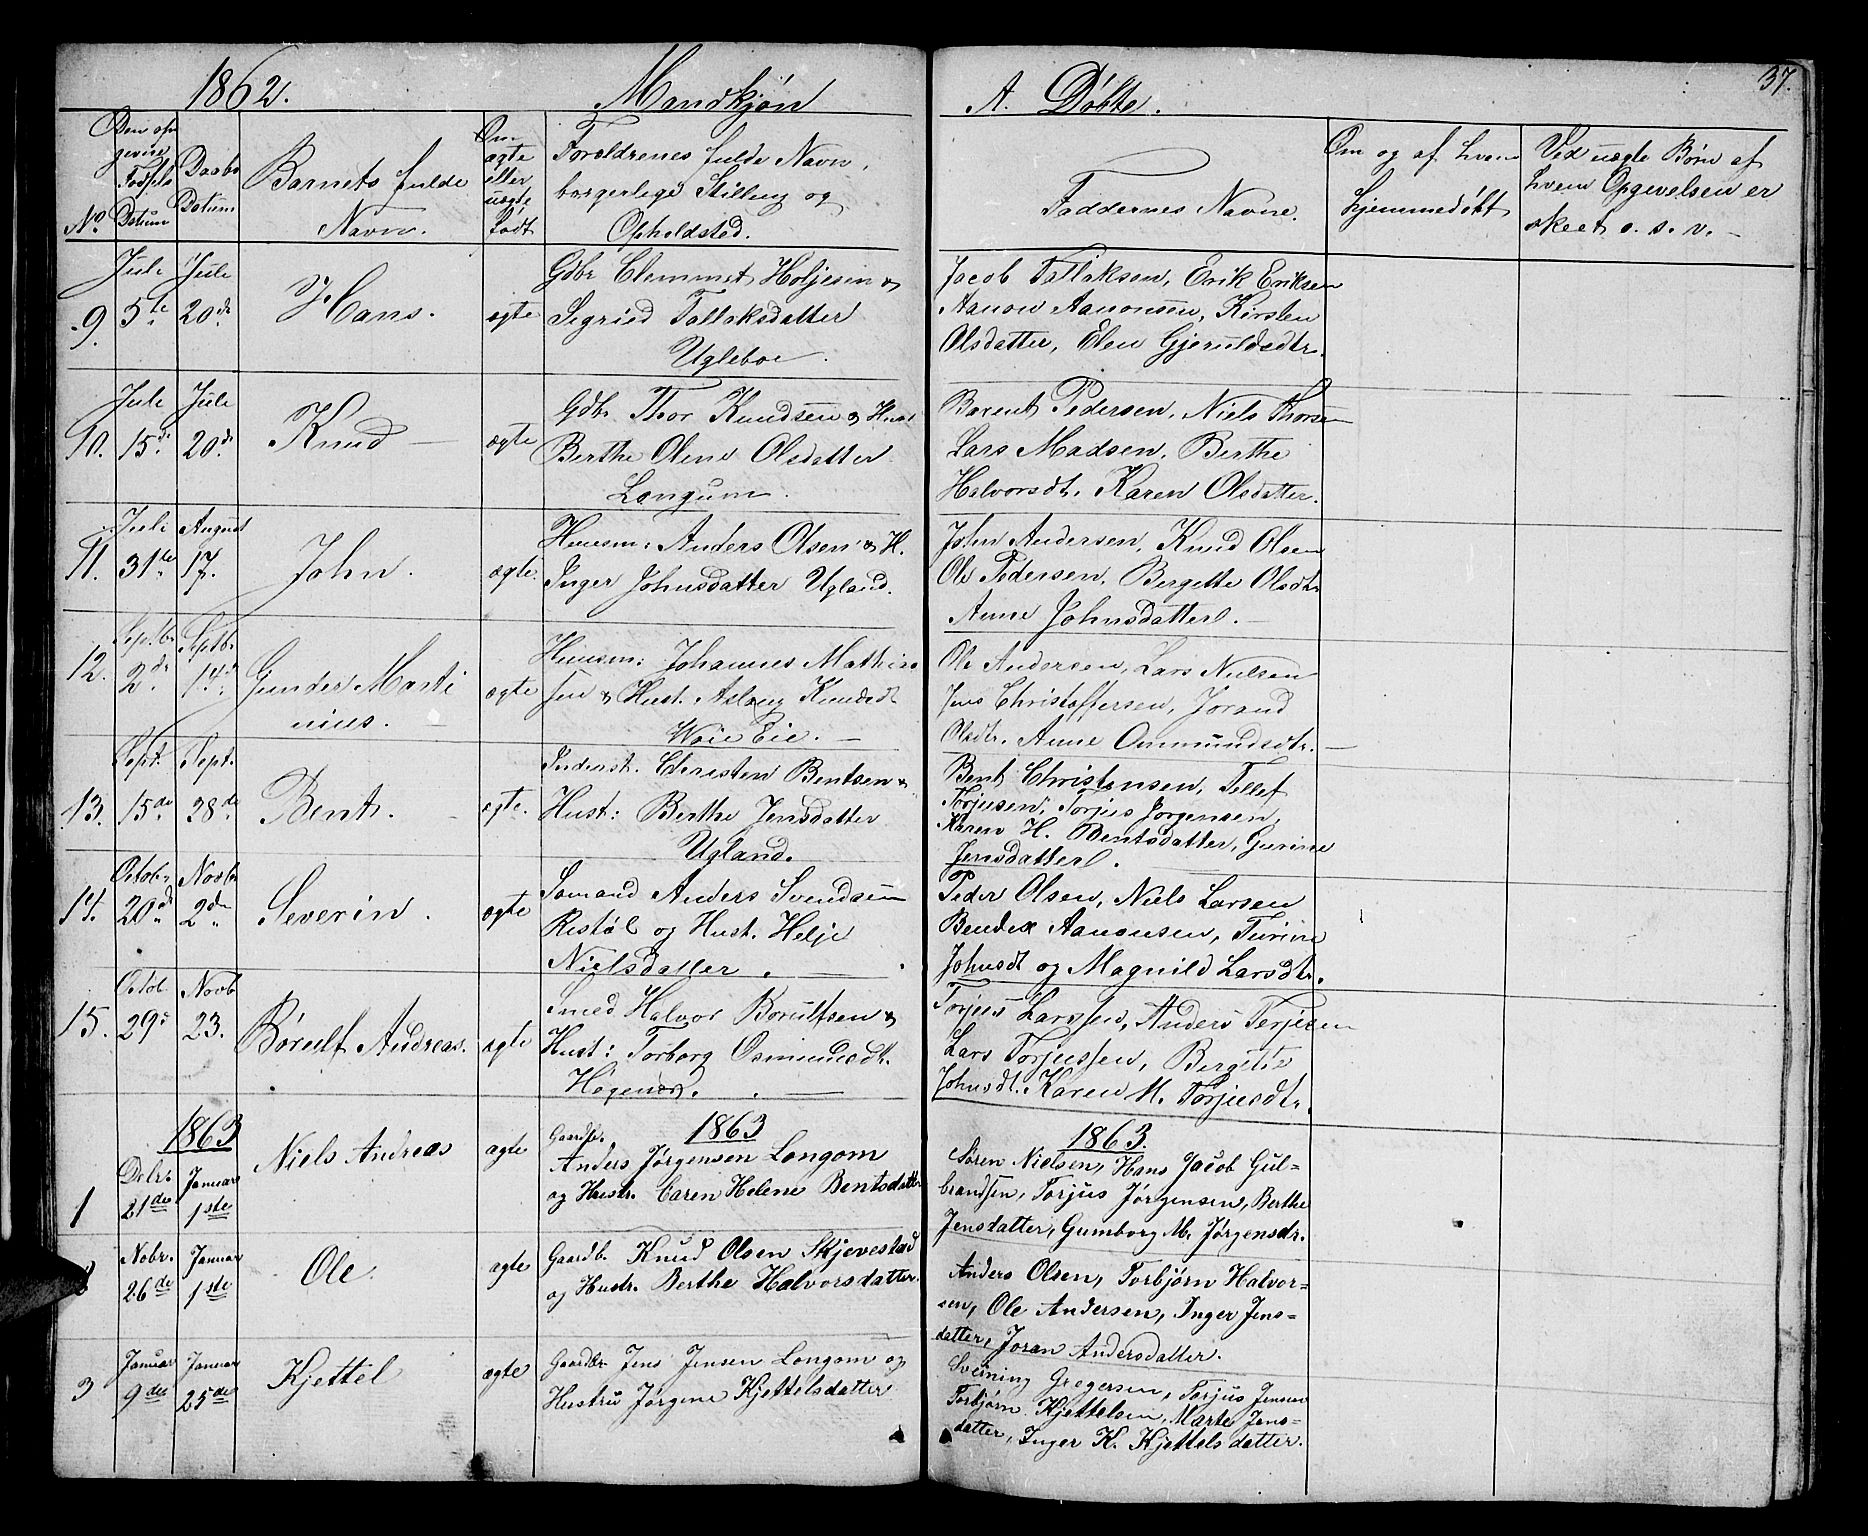 1862. Mandkjøn A. Døbte. 37.
No
Den op
givne
Fødsels
Datum
Daabs
Datum
Barnets fulde
Navn.
Om
ægte
eller
uægte
født
Forældrenes fulde Navn,
borgerlige Stilling og
Opholdsted.
Faddernes Navne.
Om og af hvem
hjemmedøbt
Ved uægte Børn af
hvem Opgivelsen er
skeet o. s. v. –
9.
Juli
5te
Juli
20de
Hans.
ægte
Gdbr Clemmet Holjesen &
Sigried Tallaksdatter
Ugleboe.
Jacob Tallaksen, Erik Eriksen
Aanon Aanonsen, Kirsten
Olsdatter, Elen Gjeruldsdtr.
10.
Juli
15de
Juli
20de
Knud –
ægte
Gdbr. Thor Knudsen & Hust
Berthe Oline Olsdatter
Longum.
Barent Pedersen, Niels Thorsen
Lars Madsen, Berthe
Halvorsdt. Karen Olsdatter.
11.
Juli
31te
August
17.
John.
ægte.
Huusm: Anders Olsen & H.
Inger Johnsdatter Ugland.
John Andersen, Knud Olsen
Ole Pedersen, Bergitte Olsdtr
Anne Johnsdatter. –
12.
Septbr
2de
Septbr
14de
Gunder Marti
nius. –
ægte
Huusm: Johannes Mathias
sen & Hust. Aslaug Knudsdt
Woie Eie. –
Ole Andersen, Lars Nielsen
Jens Christoffersen, Jorand
Olsdtr. Anne Ommundsdtr. –
13.
Sept.
15de
Sept.
28de
Bent. –
ægte.
Inderst. Christen Bentsen &
Hust: Berthe Jensdatter
Ugland.
Bent Christensen, Tellef
Torjusen, Torjus Jorgensen,
Karen H. Bentsdatter, Gurine
Jensdatter.
14.
Octobr
20de
Novbr
2den
Severin.
ægte
Sømand Anders Svendsen
Restøl og Hust. Helje
Nielsdatter. –
Peder Olsen, Niels Larsen
Bendix Aanonsen, Turine
Johnsdt og Magnild Larsdtr.
15.
Octob.
29de
Novb
23.
Børulf Andreas.
ægte
Smed Halvor Borulfsen &
Hust: Torborg Osmundsdt.
. –
Torjus Larssen, Anders Terjesen
Lars Torjussen, Bergitte
Johnsdt. Karen M. Torjusdtr.
1863
1863
1863.
1
Debr.
21de
Januar
1ste
Niels Andreas
ægte
Gaardb.
Anders Jørgensen Longom
og Hustr. Caren Helene Bentsdatter
Søren Nielsen, Hans Jacob Gul=
brandsen, Torjus Jørgensen, Berthe
Jensdatter, Gumborg M. Jørgensdr.
2
Nobr.
26de
Januar
1ste
Ole.
ægte
Gaardb. Knud Olsen Skjevestad
og Hustr. Berthe Halvorsdatter.
Anders Olsen, Torbjørn Halvor=
sen, Ole Andersen, Inger Jens=
datter, Joran Andersdatter.
3
Januar
9de
Januar
25de
Kjettel
ægte
Gaardbr Jens Jensen Longom og
Hustru Jørgine Kjettelsdatter
Svenning Gregersen, Torjus Jensen
Torbjørn Kjettelsen, Marte Jens=
datter, Inger K. Kjettelsdatter.